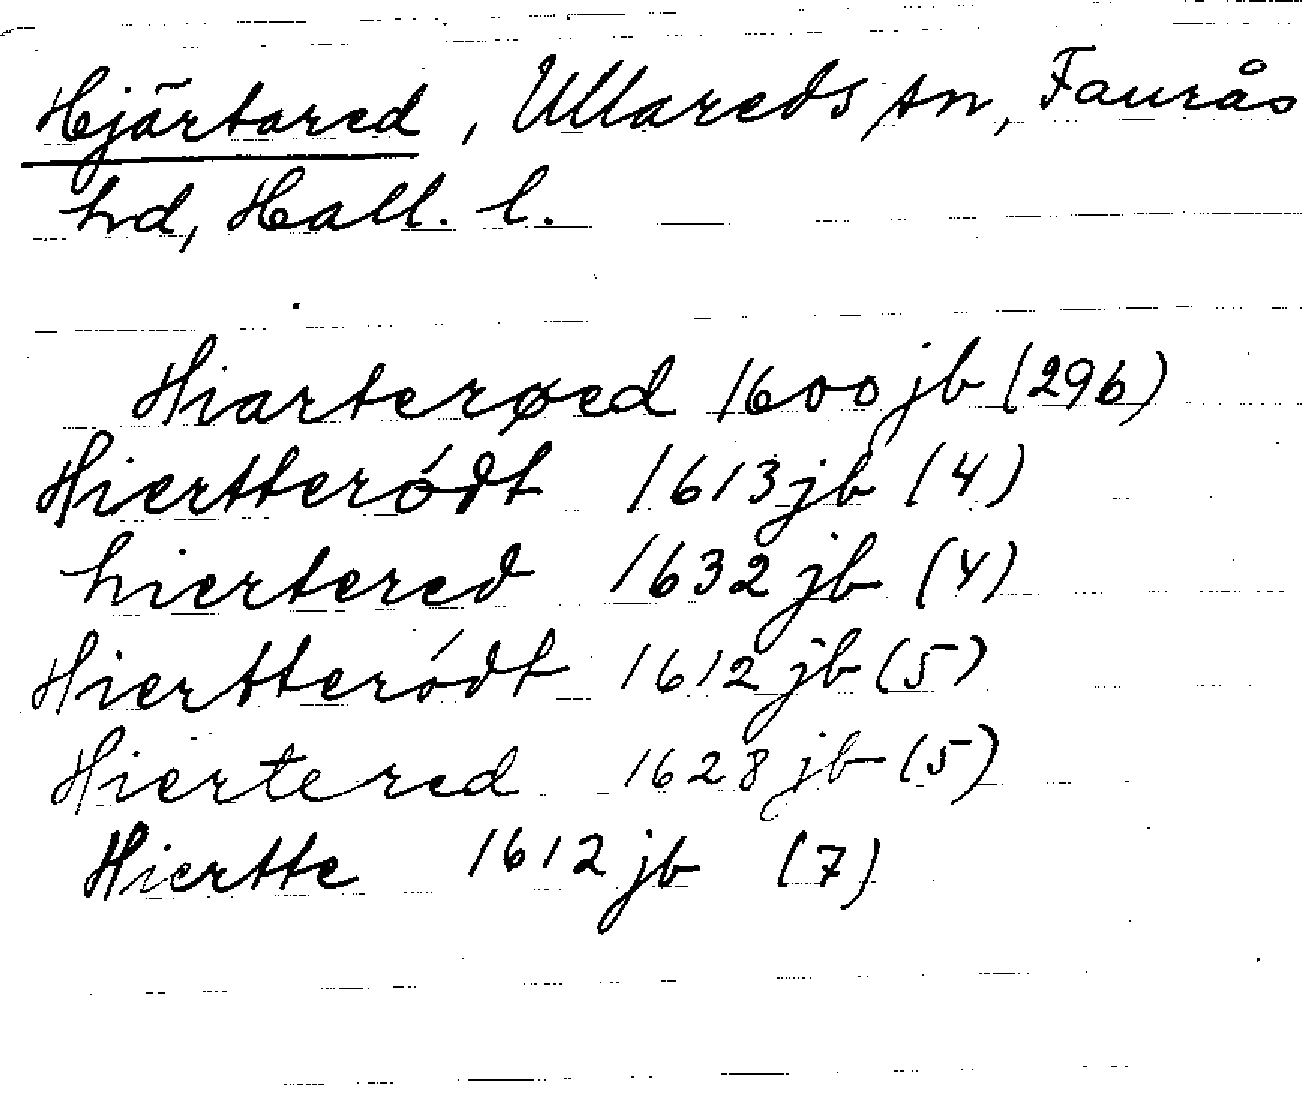 Hjärtared, Ullareds sn, Faurås
hd, Hall. l.
Hiarterøed 1600 jb (296)
Hiertteródt 1613 jb (4)
hiertered 1632 jb (4)
Hiertteródt 1612 jb (5)
Hiertered 1628 jb (5)
Hiertte 1612 jb (7)